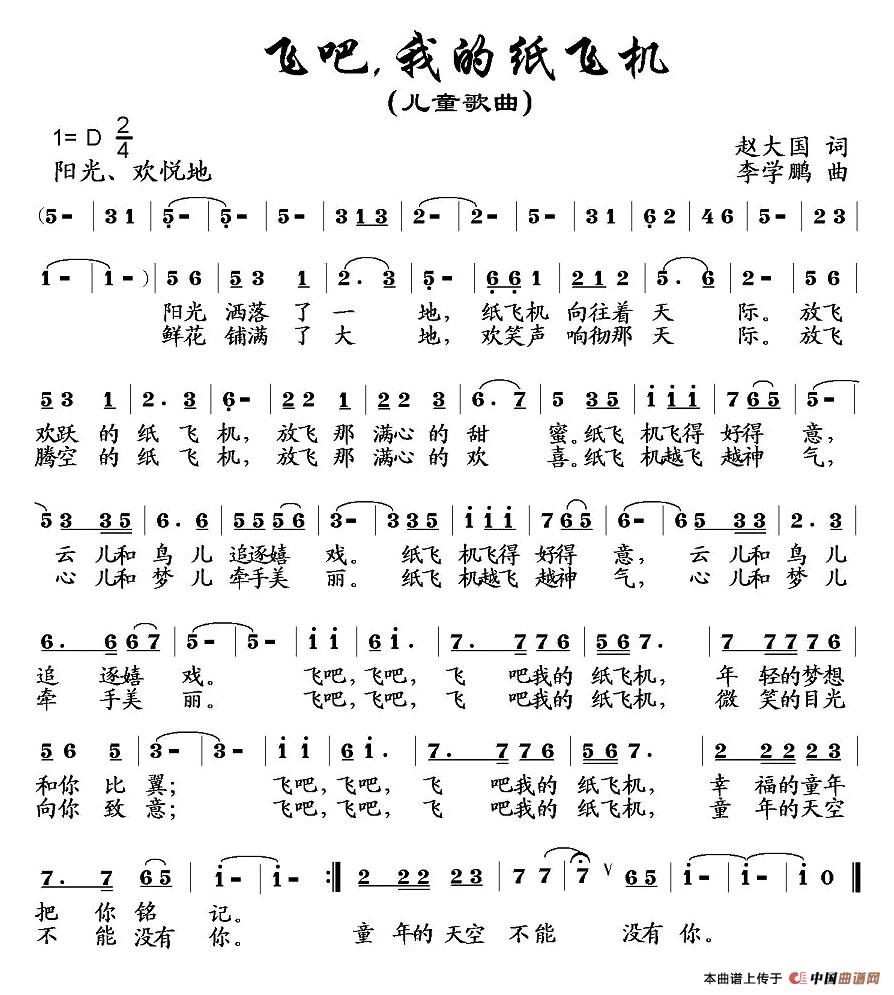 飞吧,我的纸飞机
(儿童歌曲)
1= D 2/4
赵大国 词
阳光、欢悦地
李学鹏 曲
(5 - | 3 1 | 5 - | 5 - | 5 - | 3 1 3 | 2 - | 2 - | 5 - | 3 1 | 6 2 | 4 6 | 5 - | 2 3 |
1 - | 1 - ) | 5 6 | 5 3 1 | 2 . 3 | 5 - | 6 6 1 | 2 1 2 | 5 . 6 | 2 - | 5 6 |
阳光 洒落 了 一 地, 纸飞机 向往着 天 际。 放飞
鲜花 铺满 了 大 地, 欢笑声 响彻那 天 际。 放飞
5 3 1 | 2 . 3 | 6 - | 2 2 1 | 2 2 3 | 6 . 7 | 5 3 5 | i i i | 7 6 5 | 5 - |
欢跃 的 纸 飞 机, 放飞 那 满心 的 甜 蜜。纸飞 机飞得 好得 意,
腾空 的 纸 飞 机, 放飞 那 满心 的 欢 喜。纸飞 机越飞 越神 气,
5 3 3 5 | 6 . 6 | 5 5 5 6 | 3 - | 3 3 5 | i i i | 7 6 5 | 6 - | 6 5 3 3 | 2 . 3 |
云 儿和 鸟 儿 追逐嬉 戏。 纸飞 机飞得 好得 意, 云 儿和 鸟儿
心 儿和 梦 儿 牵手美 丽。 纸飞 机越飞 越神 气, 心 儿和 梦儿
6 . 6 6 7 | 5 - | 5 - | i i | 6 i . | 7 . 7 7 6 | 5 6 7 . | 7 7 7 7 6 |
追 逐嬉 戏。 飞吧,飞吧, 飞 吧我的 纸飞机, 年 轻的梦想
牵 手美 丽。 飞吧,飞吧, 飞 吧我的 纸飞机, 微 笑的目光
5 6 5 | 3 - | 3 - | i i | 6 i . | 7 . 7 7 6 | 5 6 7 . | 2 2 2 2 3 |
和你 比 翼; 飞吧,飞吧, 飞 吧我的 纸飞机, 幸 福的童年
向你 致 意; 飞吧,飞吧, 飞 吧我的 纸飞机, 童 年的天空
7 . 7 | 6 5 | i - | i - :‖ 2 2 2 2 3 | 7 7 | 7 V | 6 5 | i - | i - | i 0 ‖
把 你 铭 记。
不 能 没有 你。 童 年的 天空 不能 没有 你。
本曲谱上传于 中国曲谱网